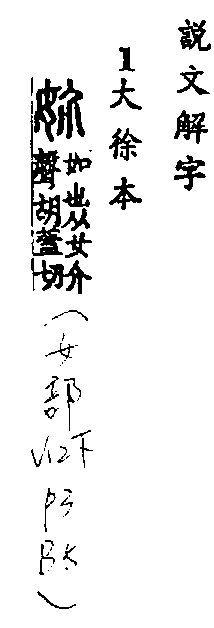 説文解字
1大徐本
妎
妒也从女介
聲胡蓋切
(女部
V12下
P3